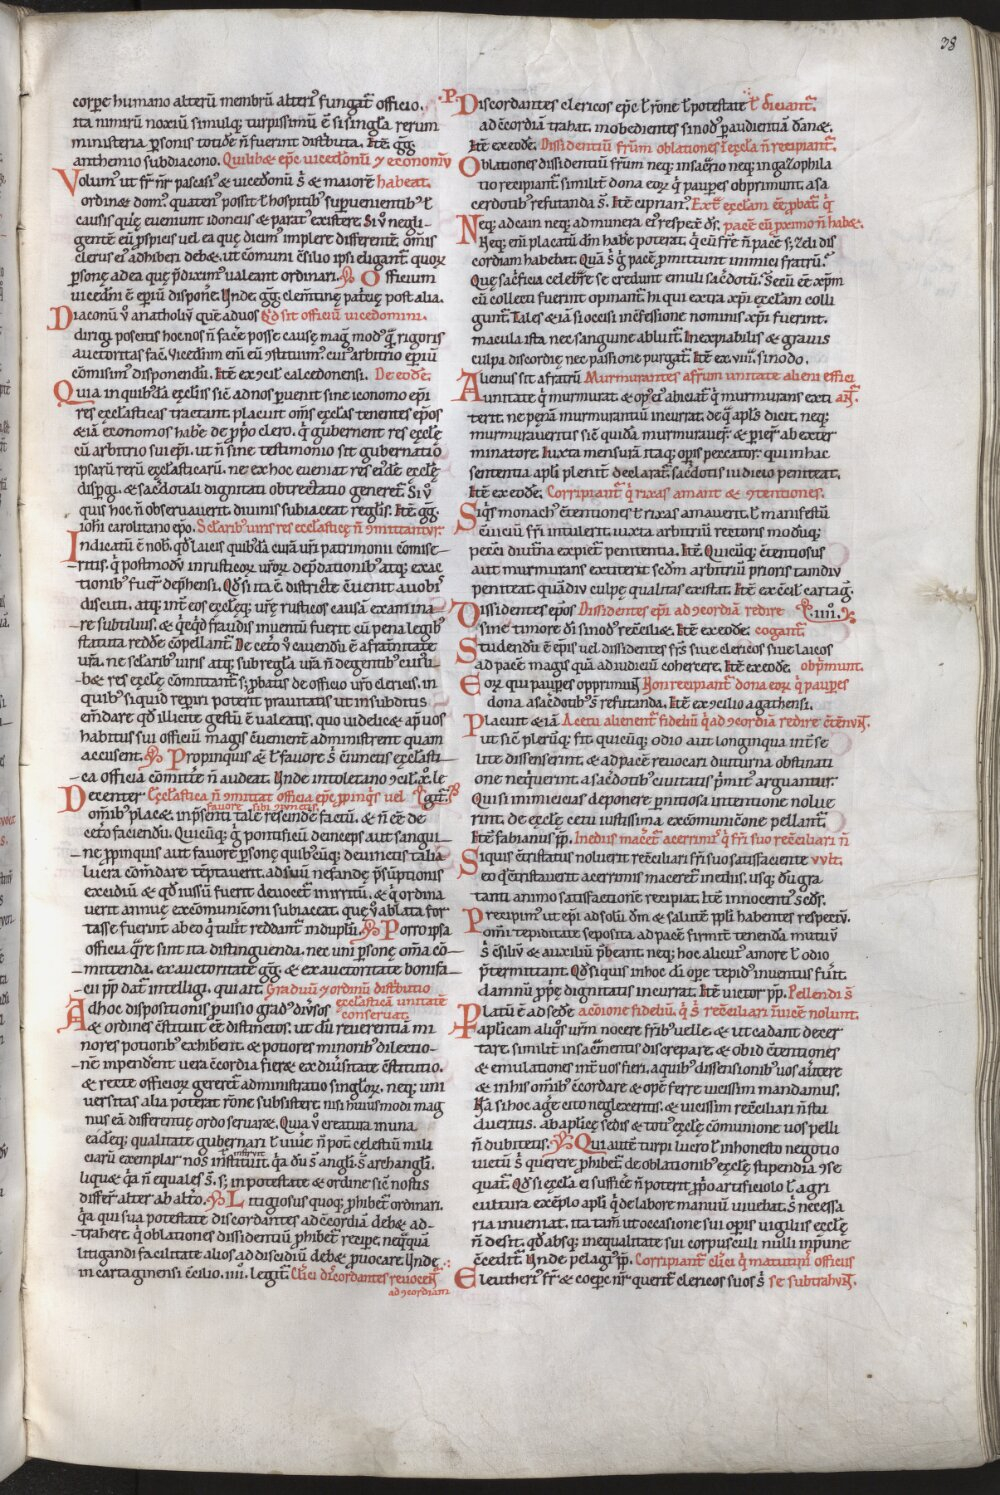 38
corpe humano alterū membrū alteri' fungat̄ officio.
ita nimirū noxiū simulq; turpissimū ē si singla rerum
ministeria psonis totidē n̄ fuerint distributa. Itē. gg.
anthemio subdiacono. Quilibet epc uicedōnū ⁊ economū
Volum' ut fr̄ nr̄ pascasi' & uicedōnū s̄ & maiorē habeat.
ordinet domi. quaten' possit ł hospitib' supuenientib' ł
causis quę eueniunt idoneus & parat' existere. Si ū negli-
gentē eū pspicis uel ea quę dicim' implere differentē. om̄is
clerus ei' adhiberi debet. ut cōmuni cōsilio ipsi eligant̄ quorꝝ
psonę ad ea quę pdixim' ualeant ordinari. Officium
uicedn̄i ē epiū disponē. Unde. gg. clementinę patrię post alia.
Diaconū ū anatholiū quē ad uos Qd sit officiū uicedomini.
dirigi poscitis hoc nos n̄ facē posse causę mag' mod' q̄ rigoris
auctoritas facit. Vicedn̄m eni eū 9stituim'. cui' arbitrio epiū
cōmisim' disponendū. Itē ex 9cil' calcedonensi. De eodē.
Quia in quibdā ęcclis sic̄ ad nos puenit sine iconomo epi
res ęcclasticas tractant. placuit om̄s ęcclas tenentes epos
& iā economos habe de pprio clero. q̄ gubernent res ęcclę
cū arbitrio sui epi. ut n̄ sine testimonio sit gubernatio
ipsarū rerū ęcclasticarū. ne ex hoc eueniat res ei'dē ęcclę
dispgi. & sacdotali dignitati obtrectatio generet̄. Si ū
quis hoc n̄ obseruauerit. diuinis subiaceat reglis. Itē. gg.
iohi carolitano epo. Sclarib' uiris res ecclasticę n̄ 9mittant̄ur.
Indicatū ē nob. qd laicis quibdā curā uri patrimonii cōmise-
ritis. q̄ postmodū in rusticor' uror' depdationib' atq; exac-
tionib' fuer̄ dephensi. Qd si ita ē districtē cōuenit a uobi'
discuti. atq; int eos ęcclęq; urę rusticos causā examina-
re subtilius. & q̄cqd fraudis inuentū fuerit cū pena legib'
statuta reddē cōpellant̄. De cet'o ū cauendū ē a frat̄nitate
ura. ne sclarib' uiris atq; sub regla ura n̄ degentib' cui'li-
bet res ęcclę cōmittant̄. s; pbatis de officio uro clericis. in
quib' siquid repiri poterit prauitatis ut in subditis
em̄dare qd illicite gestū ē ualeatis. quo uidelicet ap uos
habitus sui officiū magis cōuenient administrent quam
accusent. Propinquis & ł fauore s̄ cūnctis ęcclasti-
ca officia comitte n̄ audeat. Unde in toletano 9cil'. x. le
Decenter Ęcclastica n̄ 9mittat officia epc ppinq's uel git̄.
fauore sibi 9iunctis.
omib' placet. in psenti tale rescindē factū. & n̄ ēē de
cet'o faciendū. Quicūq; g' pontificiū deinceps aut sangui-
ne ppinquis aut fauore psonę quib'cūq; deuinctis talia
lucra cōmdare tēptauerit. ad suū nefandę psūptionis
excidiū & qd iussū fuerit deuocet̄ in irritū. & q̄ ordina
uerit annuę excōmunicōni subiaceat. quę ū ablata for
tasse fuerint ab eo q̄ tulit̄ reddant̄ in duplū. Porro ipsa
officia q̄re sint ita distinguenda. nec uni psonę om̄a cō-
mittenda. ex auctoritate gg. & ex auctoritate bonifa-
cii pp dat̄ intelligi. qui ait. Graduū ⁊ ordinū distributio
Ad hoc dispositionis puisio grad' diu'sos ęcclasticā unitatē
conseruat.
& ordines cōstituit ēē distinctos. ut dū reuerentiā mi
nores potiorib' exhibent. & potiores minorib' dilectio-
nē inpendent uera cōcordia fieret ex diu'sitate cōstitutio.
& recte officiorꝝ gereret̄ administratio singlorꝝ. neq; uni
uersitas alia poterat rōne subsistere. nisi huiusmodi mag
nus eā differentię ordo seruaret. Quia ū creatura in una
eadēq; qualitate gubernari ł uiuē n̄ pot. celestiū mili
ciarū exemplar nos instituit. q̄a dū s̄ angli. s̄ archangli.
liquet q̄a n̄ equales s̄. s; in potestate & ordine sic̄ nostis
differt alter ab alto. Litigiosus quoq; phibet̄ ordinari.
q̄a qui sua potestate discordantes ad cōcordiā debet ad-
trahere. q̄ oblationes dissidentiū phibet̄ recipe. neq̄quā
litigandi facilitate alios ad discidiū debet puocare. Unde
in cartaginensi cōcilio. iiii. legit̄. Cl'ici di'cordantes reuocent̄
ad 9cordiam
Discordantes clericos epc ł rōne ł potestate ł dimant̄.
ad cōcordiā trahat. inobedientes sinod' paudientiā dānet.
Itē ex eodē. Dissidentiū frūm oblationes ī ęccla n̄ recipiant̄.
Oblationes dissidentiū frūm neq; in sacrario neq; in gazophila
tio recipiant̄. similit̄ dona eorꝝ q̄ paupes obprimunt. a sa
cerdotib' refutanda s̄. Itē ciprian'. Ext̄ ęcclam ēē pbat̄ q̄
Neq; ad cain neq; ad munera ei' respexit ds. pacē cū pximo n̄ habet.
Neq; eni placatū dm̄ habē poterat. q̄ cū fr̄e n̄ pacē s; zeli dis
cordiam habebat. Quā s̄ g' pacē pmittunt inimici fratrū.
Quę sac'ficia celebrare se credunt emuli sacdotū. Secū ēē xpm
cū collecti fuerint opinant̄. In qui extra xpi ęcclam colli
gunt̄. Tales & iā si occisi in cōfessione nominis xpi fuerint.
macula ista nec sanguine abluit̄. Inexpiabilis & grauis
culpa discordię nec passione purgat̄. Itē ex. viii. sinodo.
Alienus sit a fratrū Murmurantes a frum unitate alieni effici
unitate q̄ murmurat. & op' ei' abiciat̄ q̄ murmurans exti ant̄.
terit. ne penā murmurantiū incurrat. de q̄ apls dicit. neq;
murmuraueritis sic̄ quidā murmurauer̄. & pier̄ ab exter
minatore. Iuxta mensurā itaq; opis peccator. qui in hac
sententia apli plenit̄ declarat̄. sacdotis iudicio peniteat.
Itē ex eodē. Corripiant̄ q̄ rixas amant & 9tentiones.
Siq's monach' cōtentiones ł rixas amauerit. ł manifestū
cōuiciū fri intulerit. iuxta arbitriū rectoris modūq;
peccati diutina expiet̄ penitentia. Itē. Quicūq; cōtentiosus
aut murmurans extiterit. scdm arbitriū prioris tamdiu
peniteat. quādiu culpę qualitas exstitat. Itē ex cōcil' cartag.
Dissidentes epos Dissidentes epi ad 9cordiā redire .iiii.
sine timore di sinod' recōcilie. Itē ex eodē. cogant̄.
Studendū ē epis uel dissidentes frs siue clericos siue laicos
ad pacē magis quā ad iudiciū coherere. Itē ex eodē. obpmunt.
Eorꝝ qui paupes opprimunt Non recipiant̄ dona eorꝝ q̄ paupes
dona a sacdotib' s̄ refutanda. Itē ex 9cilio agathensi.
Placuit & iā A cetu alienent̄ fidelū q̄ ad 9cordiā redire cōtēnunt.
ut sic̄ plerūq; fit. quicūq; odio aut longinqua int se
lite dissenserint. & ad pacē reuocari diuturna obstinati
one nequerint. a sacdotib' ciuitatis pmit' arguantur.
Qui si inimicicias deponere pniciosa intentione nolue
rint. de ęcclę cetu iustissima excōmunicōne pellant̄.
Itē fabianus pp. Inediis macet̄ acerrimi' q̄ fri suo recōciliari n̄
Siquis cōtristatus noluerit recōciliari fri suo satisfaciente vult.
eo q' cōtristauerat acerrimis maceret̄ inediis. usq; dū gra
tanti animo satisfactionē recipiat. Itē innocenti' scds.
Precipim' ut epi ad solū dm̄ & salutē ppli habentes respectū.
omi tepiditate seposita ad pacē firmit̄ tenendā mutuū
s̄ cōsiliū & auxiliū pbeant. neq; hoc alicui' amore ł odio
ptermittant. Qd siquis in hoc di ope tepid' inuentus fuit̄.
damnū pprię dignitatis incurrat. Itē uictor pp. Pellendi s̄
Platū ē a sede acōione fidelū. q̄ s̄ recōciliari īuicē nolunt.
aplicam aliq's urm̄ nocere frīb' uelle. & ut cadant decer
tare. similit̄ in sacramentis discrepare. & ob id cōtentiones
& emulationes int uos fieri. a quib' dissensionib' uos au'tere
& in his omib' cōcordare & opē ferre uicissim mandamus.
Nā si hoc agē cito neglexeritis. & uicissim recōciliari n̄ stu
dueritis. ab aplicę sedis & toti' ęcclę cōmunione uos pelli
n̄ dubitetis. Qui autē turpi lucro ł inhonesto negotio
uictū s̄ querere phibet̄. de oblationib' ęcclę stipendia 9se
quat̄. Qd si ęccla ei suffice n̄ poterit. pprio artificiolo ł agri
cultura exēplo apli q̄ de labore manuū uiuebat. s̄ necessa
ria inueniat. ita tam̄ ut occasione sui opis uigiliis ęcclę
n̄ desit. qd absq; inequalitate sui corpusculi nulli inpune
cōcedit̄. Unde pelagi' pp. Corripiant̄ cl'ici q̄ matutini' officiis
Eleutheri' fr̄ & coepc nr̄ querit̄ clericos suos s̄ se subtrahunt.